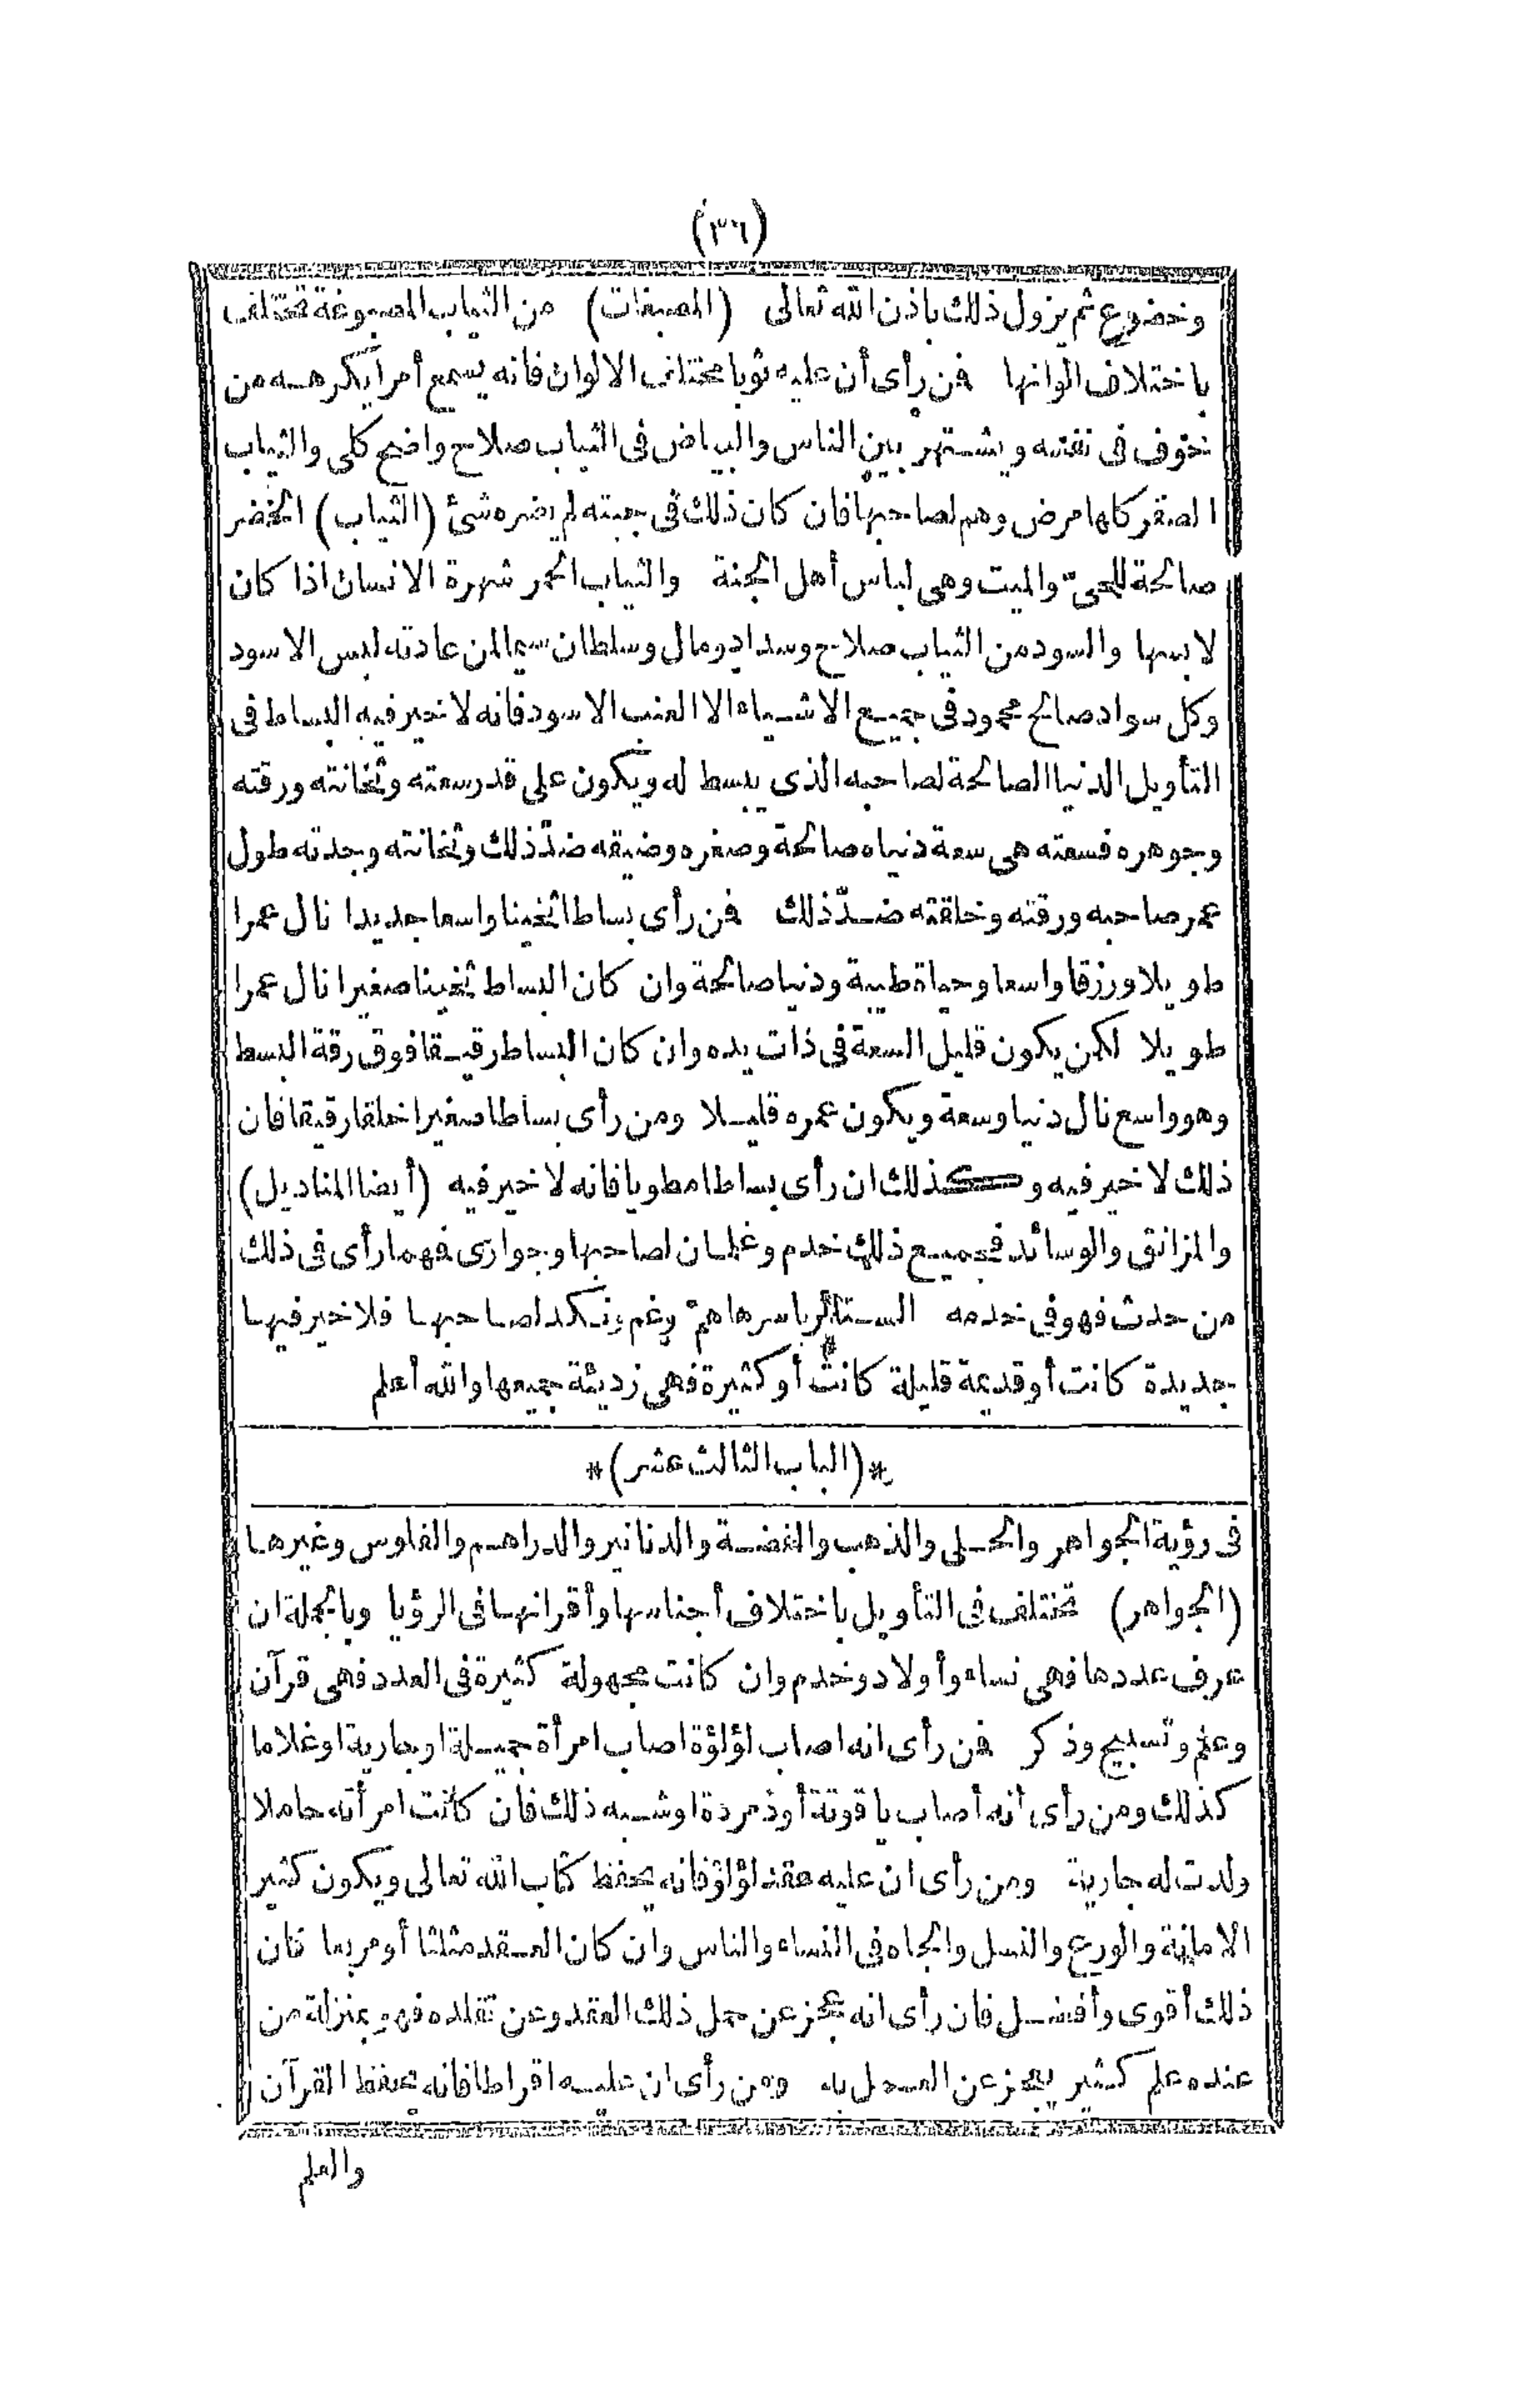 (٣٦)
وخضوع ثم يزول ذلك باذن الله تعالى (المصبغات) من الثياب المصبوغة تختلف
باختلاف الوانها فمن رأى أن عليه ثوبا مختلف الالوان فانه يسمع أمرا يكرهه من
تخوف فى نفسه ويشتهر بين الناس والبياض فى الثياب صلاح واضح كلى والثياب
الصفر كلها مرض وهم لصاحبها فان كان ذلك فى جبته لم يضره شئ (الثياب) الخضر
صالحة للحىّ والميت وهى لباس أهل الجنة والثياب الحمر شهرة الانسان اذا كان
لابسها والسود من الثياب صلاح وسداد ومال وسلطان سيما لمن عادته لبس الاسود
وكل سواد صالح محمود فى جميع الاشياء الا العنب الاسود فانه لا خير فيه البساط فى
التأويل الدنيا الصالحة لصاحبه الذى يبسط له ويكون على قدر سعته وثخانته ورقته
وجوهره فسعته هى سعة دنياه صالحة وصغره وضيقه ضدّ ذلك وثخانته وجدته طول
عمر صاحبه ورقته وخلقته ضدّ ذلك فمن رأى بساطا ثخينا واسعا جديدا نال عمرا
طويلا ورزقا واسعا وحياة طيبة ودنيا صالحة وان كان البساط ثخينا صغيرا نال عمرا
طويلا لكن يكون قليل السعة فى ذات يده وان كان البساط رقيقا فوق رقة البسط
وهو واسع نال دنيا وسعة ويكون عمره قليلا ومن رأى بساطا صغيرا خلقا رقيقا فان
ذلك لا خير فيه وكذلك ان رأى بساطا مطويا فانه لا خير فيه (أيضا المناديل)
والمزانق والوسائد فجميع ذلك خدم وغلمان لصاحبها وجوارى فهما رأى فى ذلك
من حدث فهو فى خدمه الستائر باسرها همّ وغم ونكد لصاحبها فلا خير فيها
جديدة كانت أو قديمة قليلة كانت أو كثيرة فهى رديئة جميعها والله أعلم
* (الباب الثالث عشر) *
فى رؤية الجواهر والحلى والذهب والفضة والدنانير والدراهم والفلوس وغيرها
(الجواهر) تختلف فى التأويل باختلاف أجناسها وأقرانها فى الرؤيا وبالجملة ان
عرف عددها فهى نساء وأولاد وخدم وان كانت مجهولة كثيرة فى العدد فهى قرآن
وعلم وتسبيح وذكر فمن رأى انه اصاب لؤلؤة اصاب امرأة جميلة اوجارية اوغلاما
كذلك ومن رأى أنه أصاب ياقوتة أوذمردة اوشبه ذلك فان كانت امرأته حاملا
ولدت له جارية ومن رأى ان عليه عقد لؤلؤ فانه يحفظ كتاب الله تعالى ويكون كثير
الامانة والورع والنسل والجاه فى النساء والناس وان كان العقد مثلثا أومربعا فان
ذلك أقوى وأفضل فان رأى انه عجز عن حمل ذلك العقد وعن تقلده فهو بمنزلة من
عنده علم كثير يعجز عن العمل به ومن رأى ان عليه اقراطا فانه يحفظ القرآن
والعلم